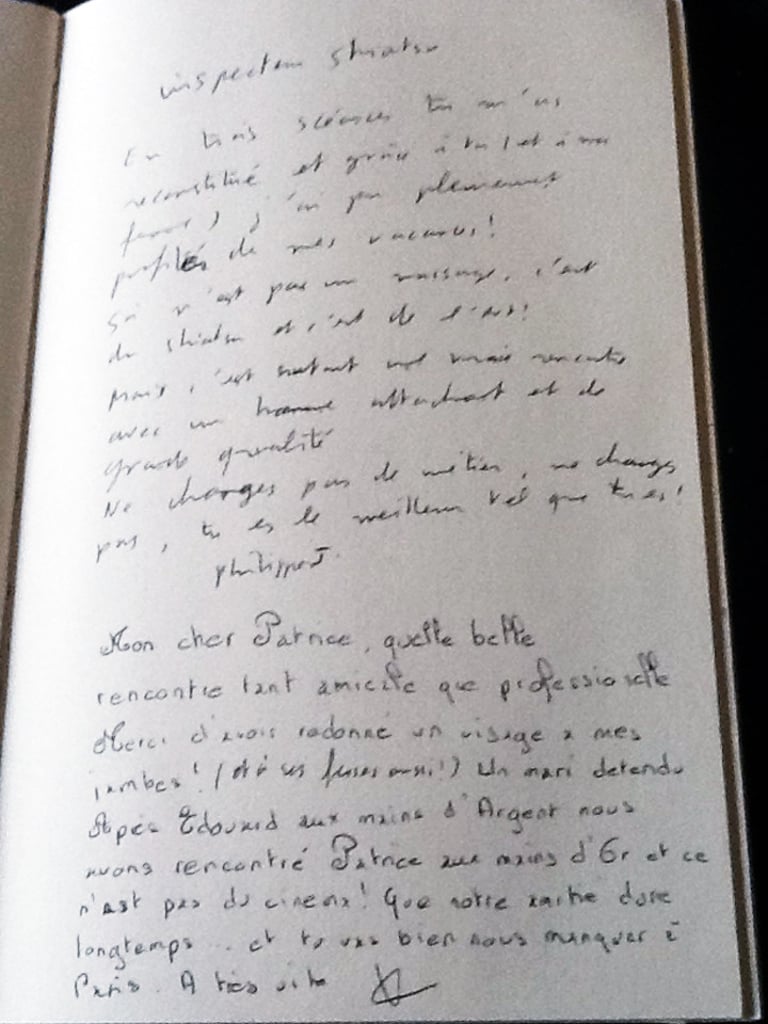 inspecteur shiatsu
En trois séances tu m'as
reconstitué et grâce à toi (et à ma
femme) j'ai pu pleinement
profiter de mes vacances!
Ça n'est pas un massage, c'est
du shiatsu et c'est de l'art!
Mais, c'est surtout une vraie rencontre
avec un homme attachant et de
grande qualité
Ne changes pas de métier, ne changes
pas, tu es le meilleur tel que tu es!
Philippe
Mon cher Patrice, quelle belle
rencontre tant amicale que professionelle
Merci d'avoir redonné un visage a mes
jambes! (et à ses fesses aussi!) Un mari detendu
Apès Edouard aux mains d'Argent nous
avons rencontré Patrice aux mains d'Or et ce
n'est pas du cinema! Que notre amitié dure
longtemps... et tu vas bien nous manquer à
Paris. A très vite